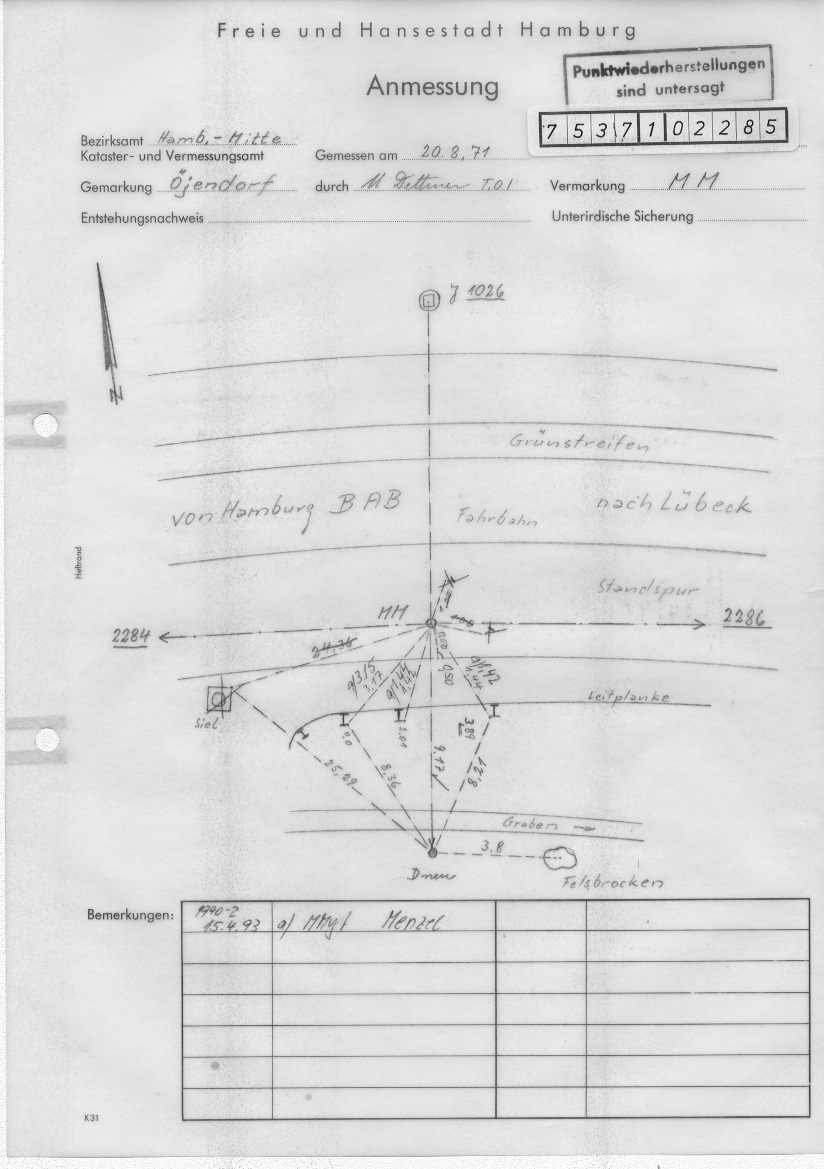 Freie und Hansestadt Hamburg
Anmessung
Punktwiederherstellungen
sind untersagt
7 5 3 7 1 0 2 2 8 5
Bezirksamt Hamb.-Mitte
Kataster- und Vermessungsamt
Gemessen am 20.8.71
Gemarkung Öjendorf
durch Dettmer T.O.I
Vermarkung MM
Entstehungsnachweis
Unterirdische Sicherung
1026
N
Grünstreifen
von Hamburg BAB
Fahrbahn
nach Lübeck
Heftrand
Standspur
MM
2284
2286
24,36
0,50
a/3,15
3,17
a/1,44
1,42
0,50
a/1,42
1,44
Leitplanke
Siel
0,0
2.01
3,89
25,29
8,36
9,17
8,21
Graben
3.8
Dneu
Felsbrocken
Bemerkungen:
15.4.93 a/ MMgf Menzel
K31